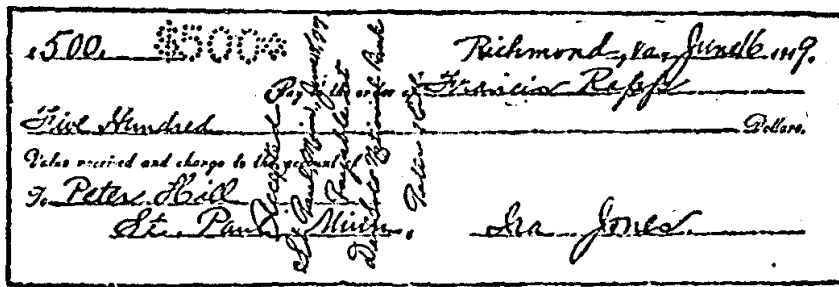 500. $500⁰⁰ Richmond, Va., June 16 1919.
Pay to the order of Francis
Five Hundred Dollars.
Value received and charge to the account of
To Peter Hill
St. Paul, Minn. Ira Jones
Accepted
St. Paul, Minn., June 18, 1919
Payable at
National Bank
Peter Hill